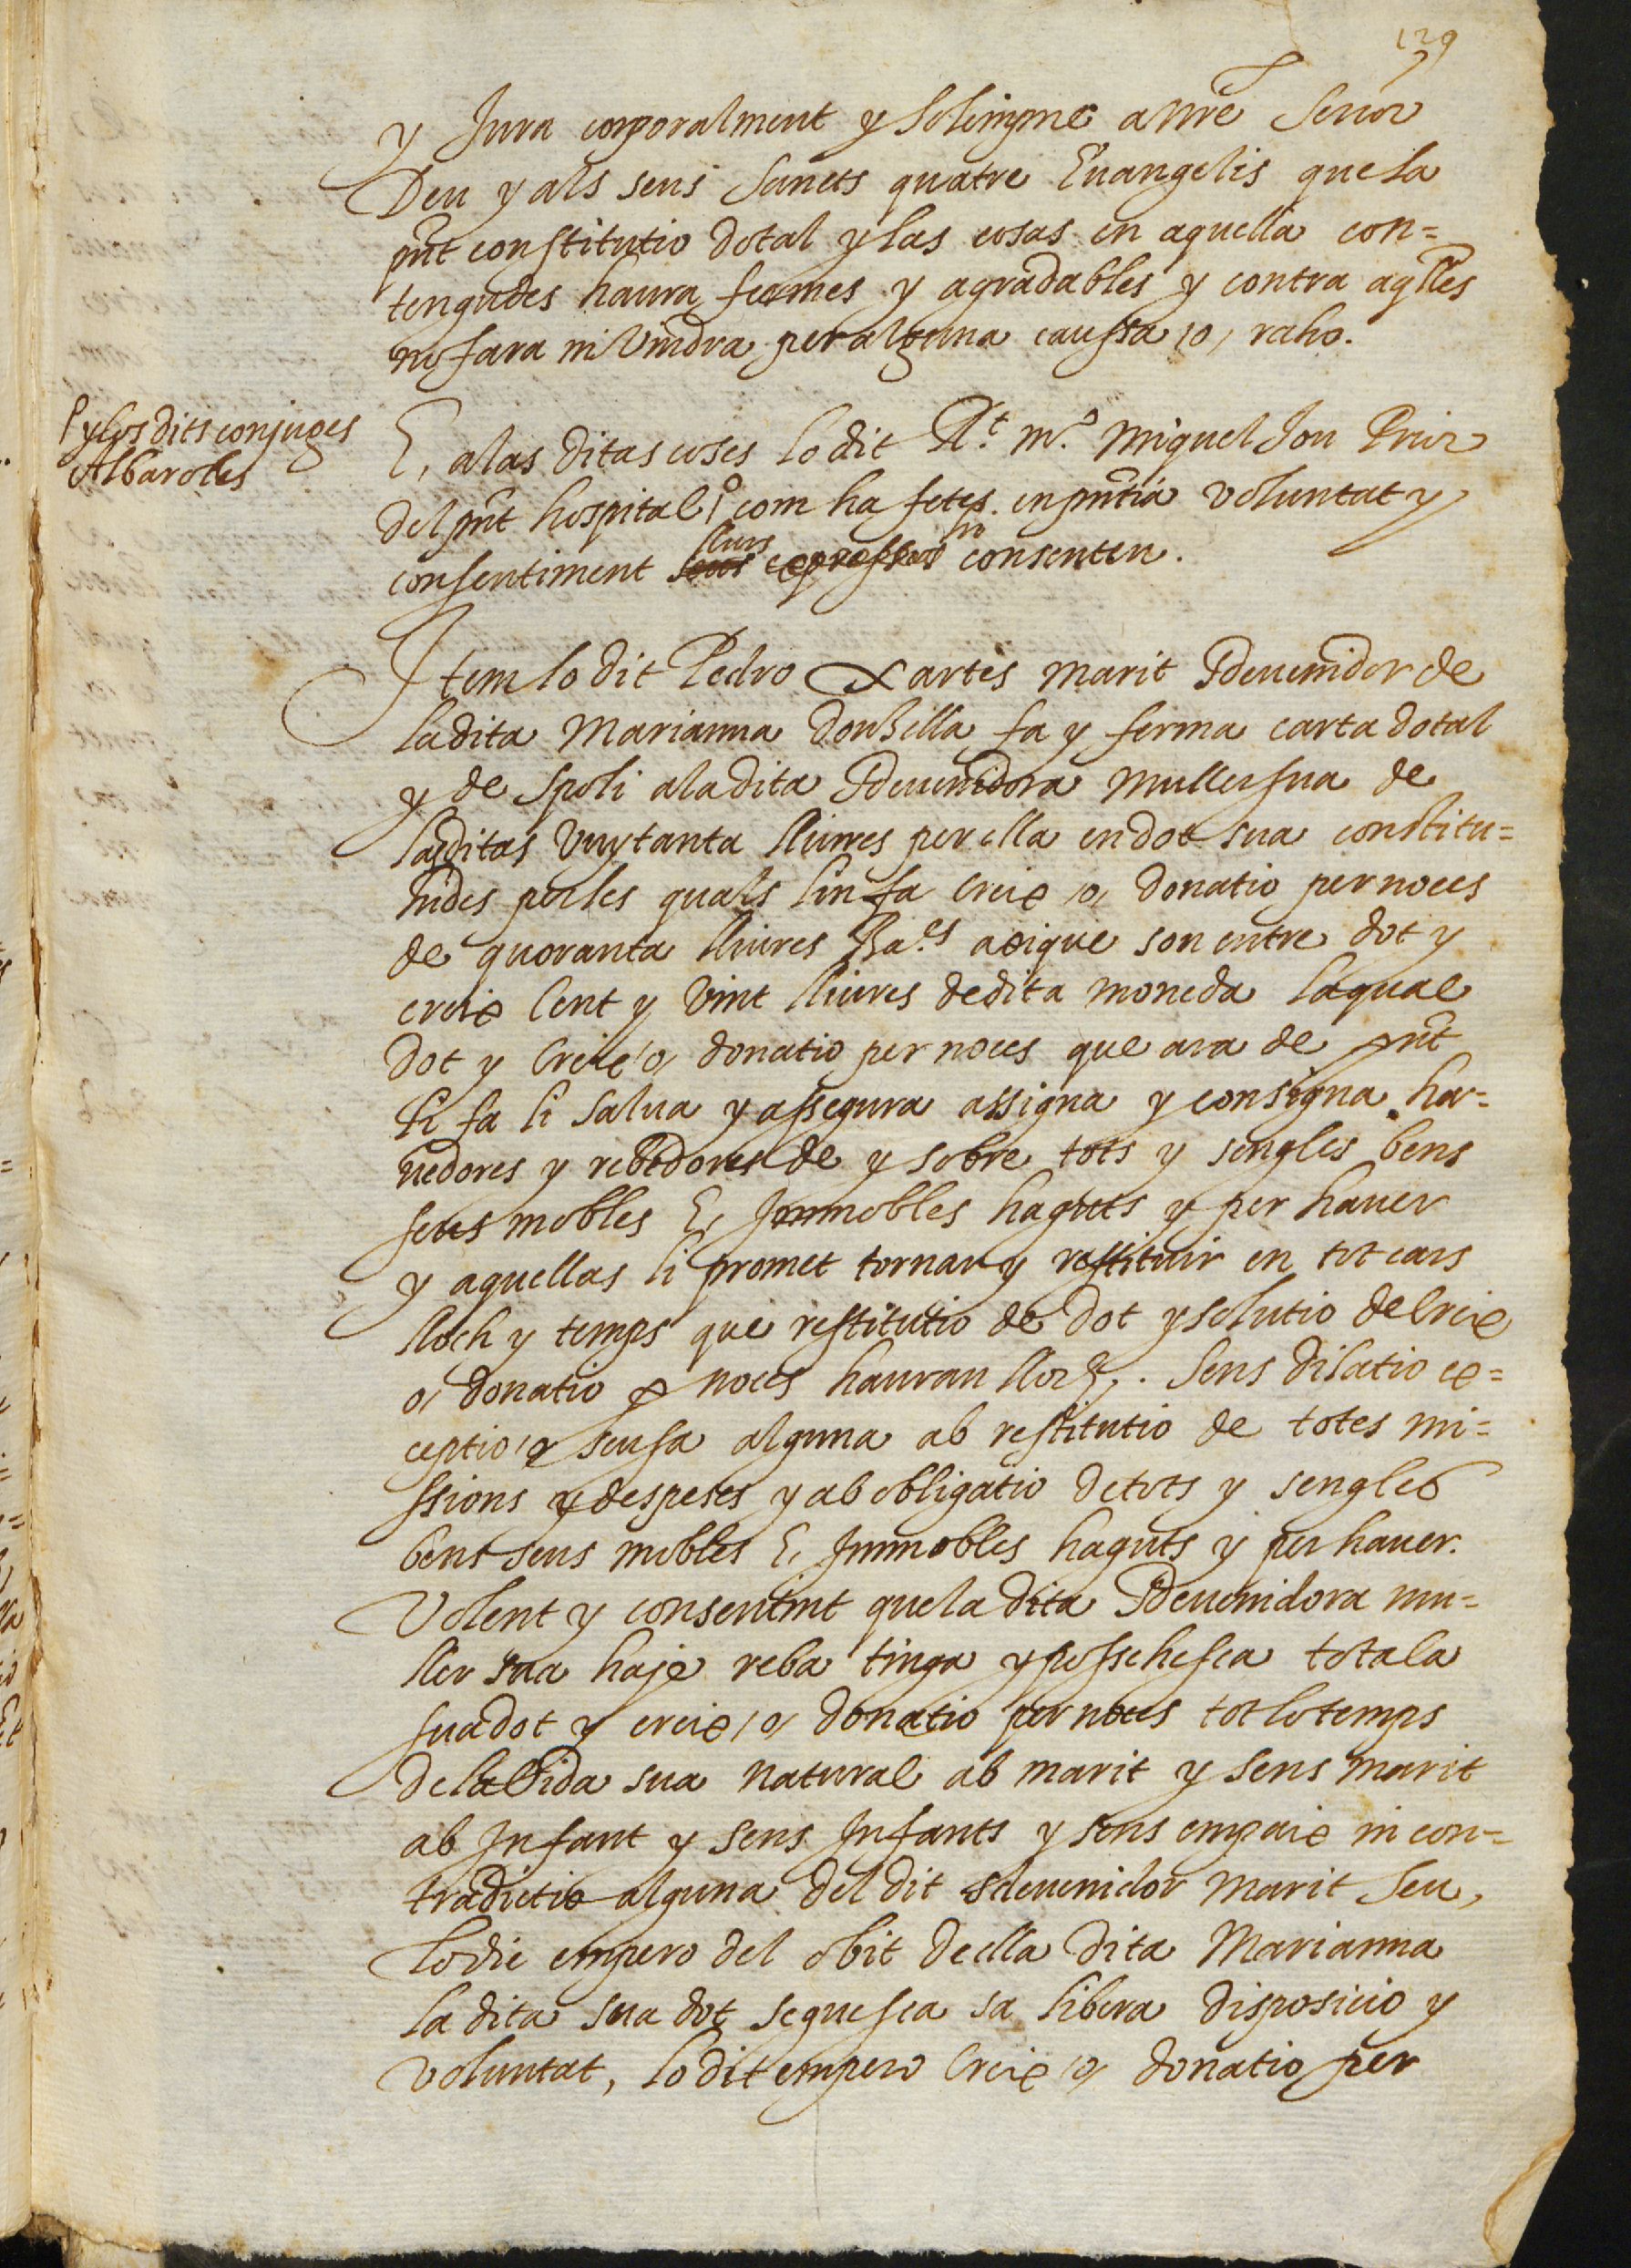 129
y Jura corporalment y solempne a nre Senor
Deu y als seus Sancts quatre Euangelis que la
pnt constitutio dotal y las cosas en aquella con=
tengudes haura fermes y agradables y contra aqlles
no fara ni vindra per alguna caussa /o/ raho.
y los dits conjuges
Albaroles
E, a las ditas coses lo dit Rt. mo. Miquel Jou Prior
del pnt hospital com ha fetes en pntia voluntat y
consentiment llurs seus expresses ho consenten.
Item lo dit Pedro Xartes marit sdeuenidor de
la dita Marianna donsella fa y ferma carta dotal
y de spoli a la dita sdeuenidora muller sua de
las ditas vuytanta lliures per ella en dot sua constitu=
hides per les quals lin fa creix /o/ donatio per noces
de quoranta lliures Ba.es axi que son entre dot y
creix Cent y vint lliures de dita moneda laqual
dot y Creix /o/ donatio per noces que ara de pnt
li fa li salua y assegura assigna y consigna ha=
uedores y rebedores de y sobre tots y sengles bens
seus mobles E, Jmmobles haguts y per hauer
y aquellas li promet tornar y restituir en tot cars
lloch y temps que restitutio de dot y solutio de Creix
o/ donatio p noces hauran lloch,. Sens dilatio ex=
ceptio /o/ scusa alguna ab restitutio de totes mi=
ssions y despeses y ab obligatio de tots y sengles
bens seus mobles E, Jmmobles haguts y per hauer.
Volent y consentint que la dita sdeuenidora mu=
ller sua haje reba tinga y possehesca tota la
sua dot y creix /o/ donatio per noces tot lo temps
de la Vida sua natural ab marit y sens marit
ab Jnfant y sens Jnfants y sens empaix ni con=
tradictio alguna del dit sdeuenidor marit seu,
lo die empero del obit de ella dita Marianna
la dita sua dot seguesca sa libera disposicio y
voluntat, lo dit empero Creix /o/ donatio per